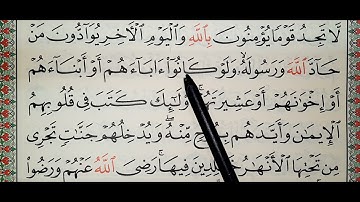 لَّا تَجِدُ قَوْمًا يُؤْمِنُونَ بِاللَّهِ وَالْيَوْمِ الْآخِرِ يُوَادُّونَ مَنْ
حَادَّ اللَّهَ وَرَسُولَهُ وَلَوْ كَانُوا آبَاءَهُمْ أَوْ أَبْنَاءَهُمْ
أَوْ إِخْوَانَهُمْ أَوْ عَشِيرَتَهُمْ أُولَٰئِكَ كَتَبَ فِي قُلُوبِهِمُ
الْإِيمَانَ وَأَيَّدَهُم مِنْهُ وَيُدْخِلُهُمْ جَنَّاتٍ تَجْرِي
مِن تَحْتِهَا الْأَنْهَارُ خَالِدِينَ فِيهَا رَضِيَ اللَّهُ عَنْهُمْ وَرَضُوا